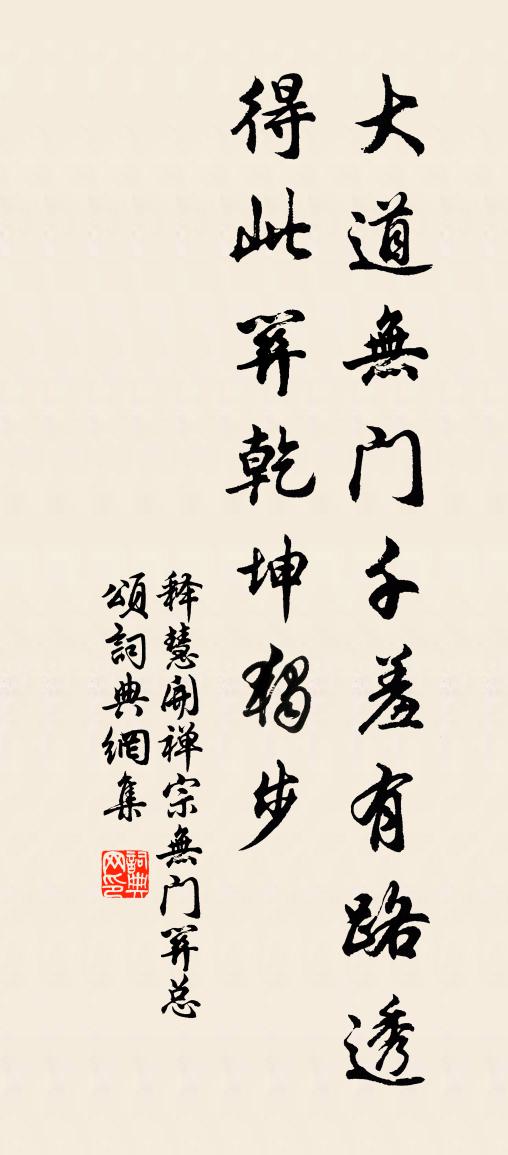 大道無门千差有路透
得此關乾坤獨步
释慧開禅宗無门關总
頌詞典網集
詞典网印